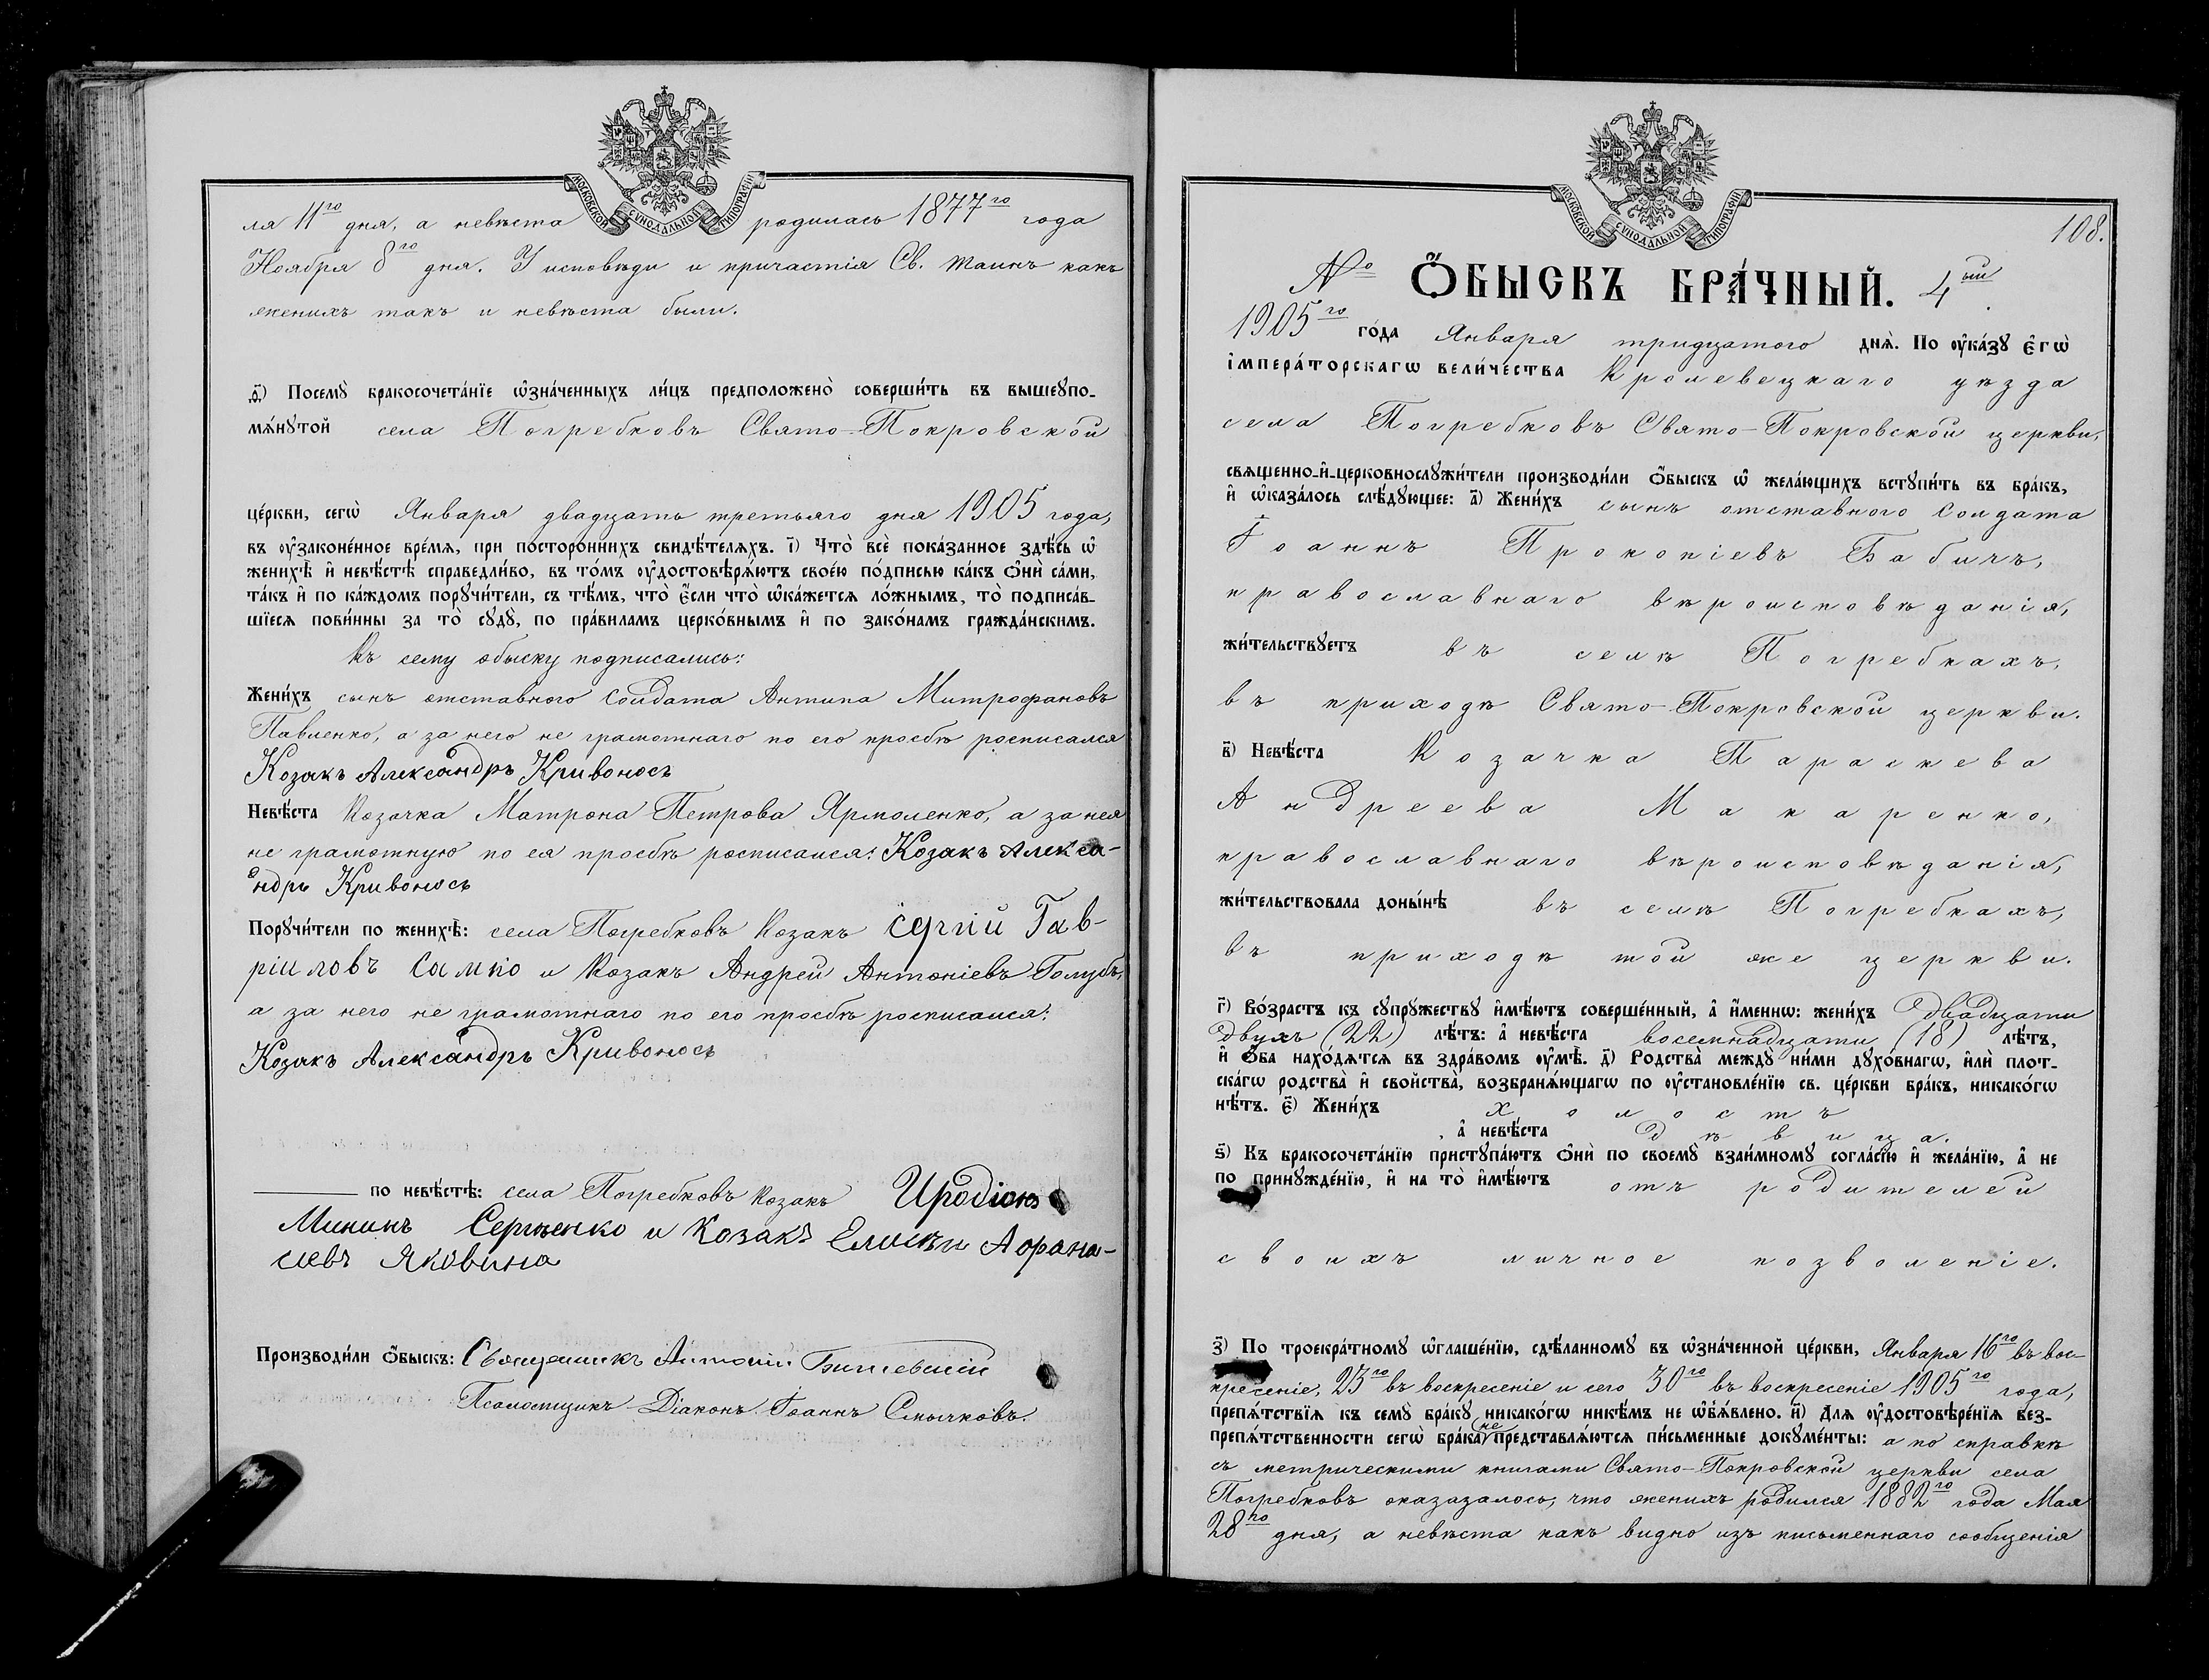 МОСКОВСКОЙ СѴНОДАЛЬНОЙ ТИПОГРАФІИ
ля 11го дня, а невѣста родилась 1877го года
Ноября 8го дня. У исповѣди и причастія Св. Таинъ какъ
женихъ такъ и невѣста были.
Посемꙋ̀ бракосочета́нїе ѡ҆зна́ченныхъ ли́цъ предположено̀ соверши́ть въ вышеꙋпо-
мѧ́нꙋтой села Погребковъ Свято-Покровской
це́ркви, сегѡ̀ Января двадцать третьяго дня 1905 года,
въ ᲂу҆законе́нное вре́мѧ, при посторо́ннихъ свидѣ́телѧхъ. і҃) Что̀ всѐ пока́занное здѣ́сь ѡ҆
женихѣ̀ и҆ невѣ́стѣ справедли́во, въ то́мъ ᲂу҆достовѣрѧ́ютъ свое́ю по́дписью ка́къ ѻ҆нѝ са́ми,
та́къ и҆ по ка́ждомъ порꙋчи́тели, съ тѣ́мъ, что̀ є҆́сли что̀ ѡ҆ка́жетсѧ ло́жнымъ, то̀ подписа́в-
шїесѧ пови́нны за то̀ сꙋдꙋ̀, по пра́виламъ церко́внымъ и҆ по зако́намъ гражда́нскимъ.
Къ сему обыску подписались:
Жени́хъ сынъ отставного солдата Антипа Митрофановъ
Павленко, а за него не грамотнаго по его просьбѣ росписался
Козакъ Александръ Кривоносъ
Невѣ́ста Козачка Матрона Петрова Ярмоленко, а за нея
не грамотную по ея просьбѣ росписался: Козакъ Алекса-
ндръ Кривоносъ
Порꙋчи́тели по женихѣ̀: села Погребковъ Козакъ Сергій Гав-
ріиловъ Самко и Козакъ Андрей Антоніевъ Голубъ,
а за него не грамотнаго по его просьбѣ росписался:
Козакъ Александръ Кривоносъ
по невѣ́стѣ: села Погребковъ Козакъ Иродіонъ
Мининъ Сергѣенко и Козакъ Елисѣй Афана-
сіевъ Яковина
Производи́ли ѻ҆́быскъ: Священникъ Антоній
Псаломщикъ Діаконъ Іоаннъ Смычковъ.
МОСКОВСКОЙ СѴНОДАЛЬНОЙ ТИПОГРАФІИ
108.
№ Ѻ҆́БЫСКЪ БРА́ЧНЫЙ. 4ый
1905го го́да Января тридцатого днѧ̀. По ᲂу҆ка́зꙋ є҆гѡ̀
і҆мпера́торскагѡ вели́чества Кролевецкаго уѣзда
села Погребковъ Свято-Покровской церкви,
свѧщенно-и҆-церковнослꙋжи́тели производи́ли ѻ҆́быскъ ѡ҆ жела́ющихъ встꙋпи́ть въ бра́къ,
и҆ ѡ҆каза́лось слѣ́дꙋющее: а҃) Жени́хъ сынъ отставного солдата
Іоаннъ Прокопіевъ Бабичъ,
православнаго вѣроисповѣданія,
жи́тельствꙋетъ въ селѣ Погребкахъ,
въ приходѣ Свято-Покровской церкви.
в҃) Невѣ́ста Козачка Параскева
Андреева Макаренко,
православнаго вѣроисповѣданія,
жи́тельствовала доны́нѣ въ селѣ Погребкахъ,
въ приходѣ той же церкви.
г҃) Во́зрастъ къ сꙋпрꙋ́жествꙋ и҆мѣ́ютъ соверше́нный, а҆ и҆́меннѡ: жени́хъ двадцати
двухъ (22) лѣ́тъ: а҆ невѣ́ста восемнадцати (18) лѣ́тъ,
и҆ ѻ҆́ба нахо́дѧтсѧ въ здра́вомъ ᲂу҆мѣ̀. д҃) Родства̀ междꙋ̀ ни́ми дꙋхо́внагѡ, и҆лѝ плот-
ска́гѡ родства̀ и҆ свойства̀, возбранѧ́ющагѡ по ᲂу҆становле́нїю св. це́ркви бра́къ, никако́гѡ
нѣ́тъ. є҃) Жени́хъ холостъ
, а҆ невѣ́ста дѣвица.
ѕ҃) Къ бракосочета́нїю пристꙋпа́ютъ ѻ҆нѝ по своемꙋ̀ взаи́мномꙋ согла́сїю и҆ жела́нїю, а҆ не
по принꙋжде́нїю, и҆ на то̀ и҆мѣ́ютъ отъ родителей
своихъ личное позволеніе.
з҃) По троекра́тномꙋ ѡ҆глаше́нїю, сдѣ́ланномꙋ въ ѡ҆зна́ченной це́ркви, Января 16го въ вос-
кресеніе, 23го въ воскресеніе и сего 30го въ воскресеніе 1905го года,
препѧ́тствїѧ къ семꙋ̀ бра́кꙋ никако́гѡ никѣ́мъ не ѡ҆б̾ѧ́влено. и҃) Длѧ ᲂу҆достовѣре́нїѧ без-
препѧ́тственности сегѡ̀ бра́ка не представлѧ́ютсѧ пи́сьменные докꙋме́нты: а по справкѣ
съ метрическими книгами Свято-Покровской церкви села
Погребковъ оказазалось, что женихъ родился 1882го года Мая
28го дня, а невѣста какъ видно изъ письменнаго сообщенія